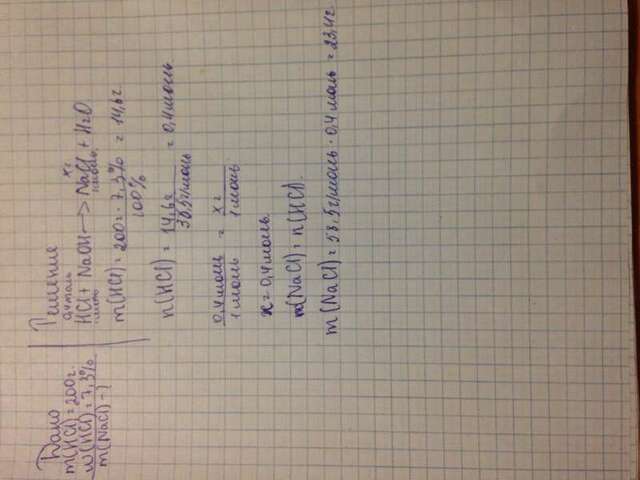 Дано
m(HCl)=200г.
w(HCl)=7,3%
m(NaCl)-?
Решение
0,4 моль xг
HCl + NaOH → NaCl + H2O
1 моль 1 моль
m(HCl) = 200г · 7,3% / 100% = 14,6г
n(HCl) = 14,6г / 36,5г/моль = 0,4 моль
0,4 моль / 1 моль = xг / 1 моль
x = 0,4 моль.
n(NaCl) = n(HCl).
m(NaCl) = 58,5г/моль · 0,4 моль = 23,4г